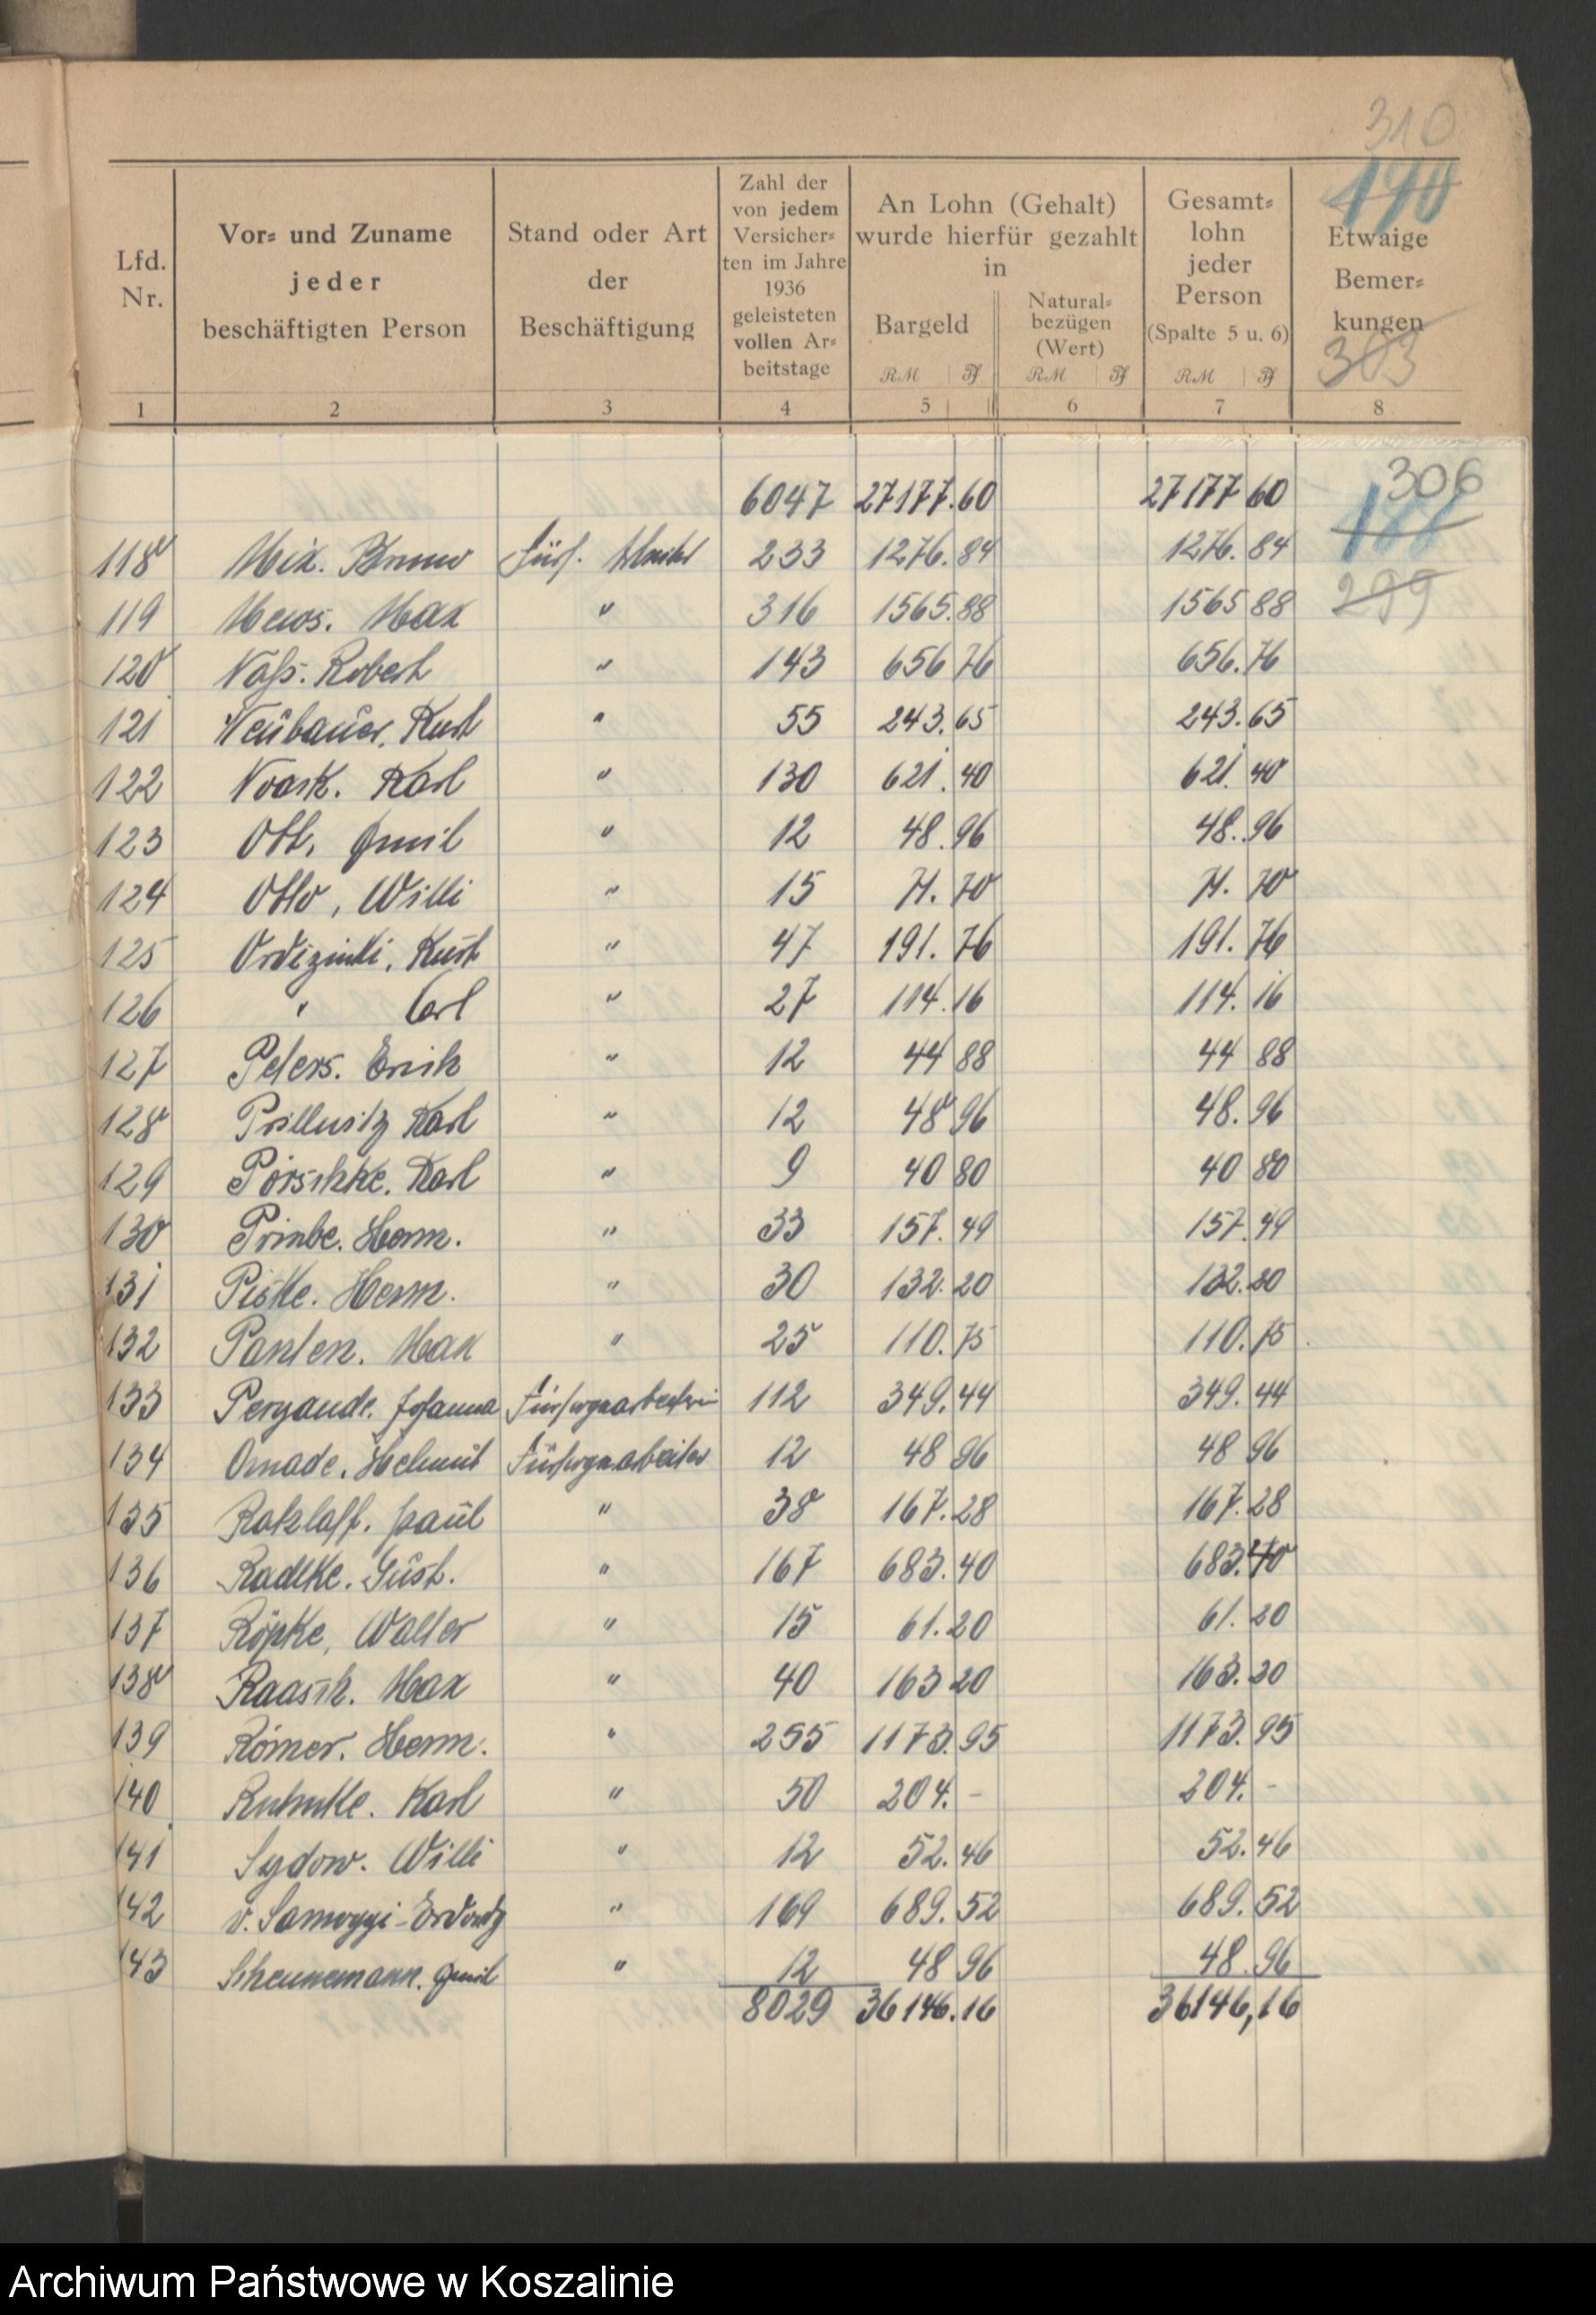 310
190
Lfd. Nr.
Vor= und Zuname jeder beschäftigten Person
Stand oder Art der Beschäftigung
Zahl der von jedem Versicher= ten im Jahre 1936 geleisteten vollen Ar= beitstage
An Lohn (Gehalt) wurde hierfür gezahlt in
Bargeld
Natural= bezügen (Wert)
Gesamt= lohn jeder Person (Spalte 5 u. 6)
Etwaige Bemer= kungen
303
RM Pf RM Pf RM Pf
1 2 3 4 5 6 7 8
306
6047 27177.60 27177 60
188
118 Mix. Bruno Fürs. Arbeiter 233 1276.84 1276.84
299
119 Mews. Max " 316 1565.88 1565 88
120 Naß. Robert " 143 656 76 656.76
121 Neubauer, Kurt " 55 243.65 243.65
122 Noask. Karl " 130 621.40 621.40
123 Ott, Emil " 12 48.96 48.96
124 Otto, Willi " 15 71.70 71.70
125 Kurt " 47 191.76 191.76
126 " Carl " 27 114.16 114.16
127 Peters. Erich " 12 44 88 44 88
128 Prillwitz Karl " 12 48 96 48.96
129 Pörschke. Karl " 9 40 80 40 80
130 Herm. " 33 157.49 157.49
131 Piske. Herm. " 30 132.20 132.20
132 Panten. Max " 25 110.75 110.75
133 Pergande. Johanna Fürsorgearbeiterin 112 349.44 349.44
134 Omade. Helmut Fürsorgearbeiter 12 48 96 48 96
135 Ratzlaff. Paul " 38 167.28 167.28
136 Radtke. Gust. " 167 683.40 683.40
137 Röpke, Walter " 15 61.20 61.20
138 Raasch. Max " 40 163 20 163.20
139 Römer. Herm. " 255 1173.95 1173.95
140 Ruhnke. Karl " 50 204.- 204.-
141 Sydow. Willi " 12 52.46 52.46
142 v. Somoggi-Erdödy " 169 689.52 689.52
143 Scheunemann. Emil " 12 48 96 48.96
8029 36146.16 36146,16
Archiwum Państwowe w Koszalinie